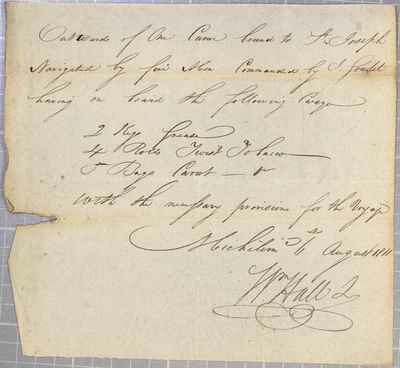 Outward of One Canoe bound to St. Joseph
Navigated by five Men Commanded by J.
having on board the following Cargo
2 Kegs Grease
4 Rolls Twist Tobacco
5 Bags Carrot —
With the necessary provisions for the Voyage
Michilim 6 August 1811
Wm Hall